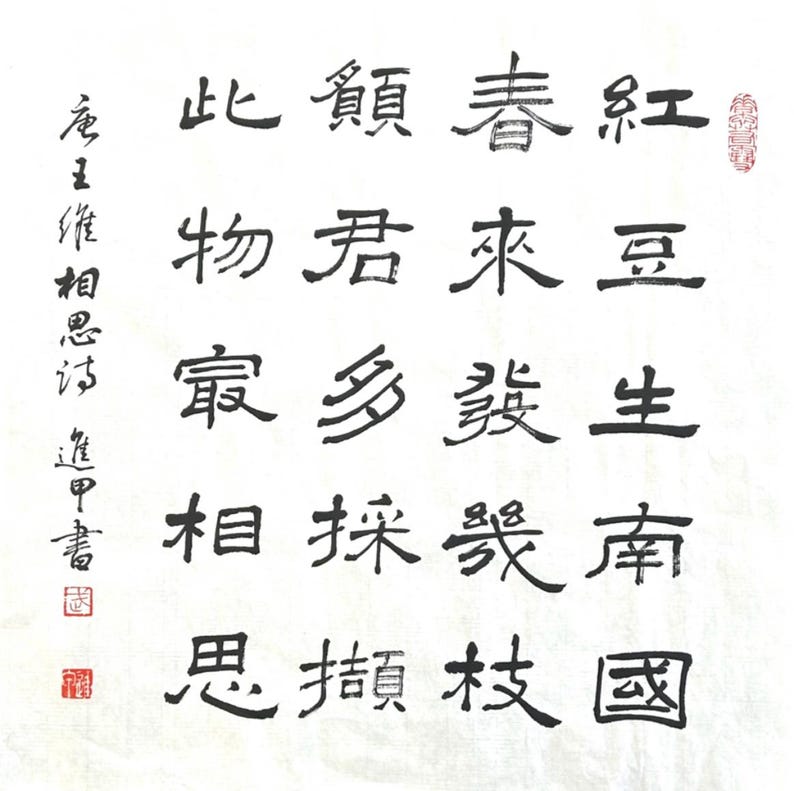 紅豆生南國
春來發幾枝
願君多採擷
此物冣相思
唐王維相思詩 進甲書
武